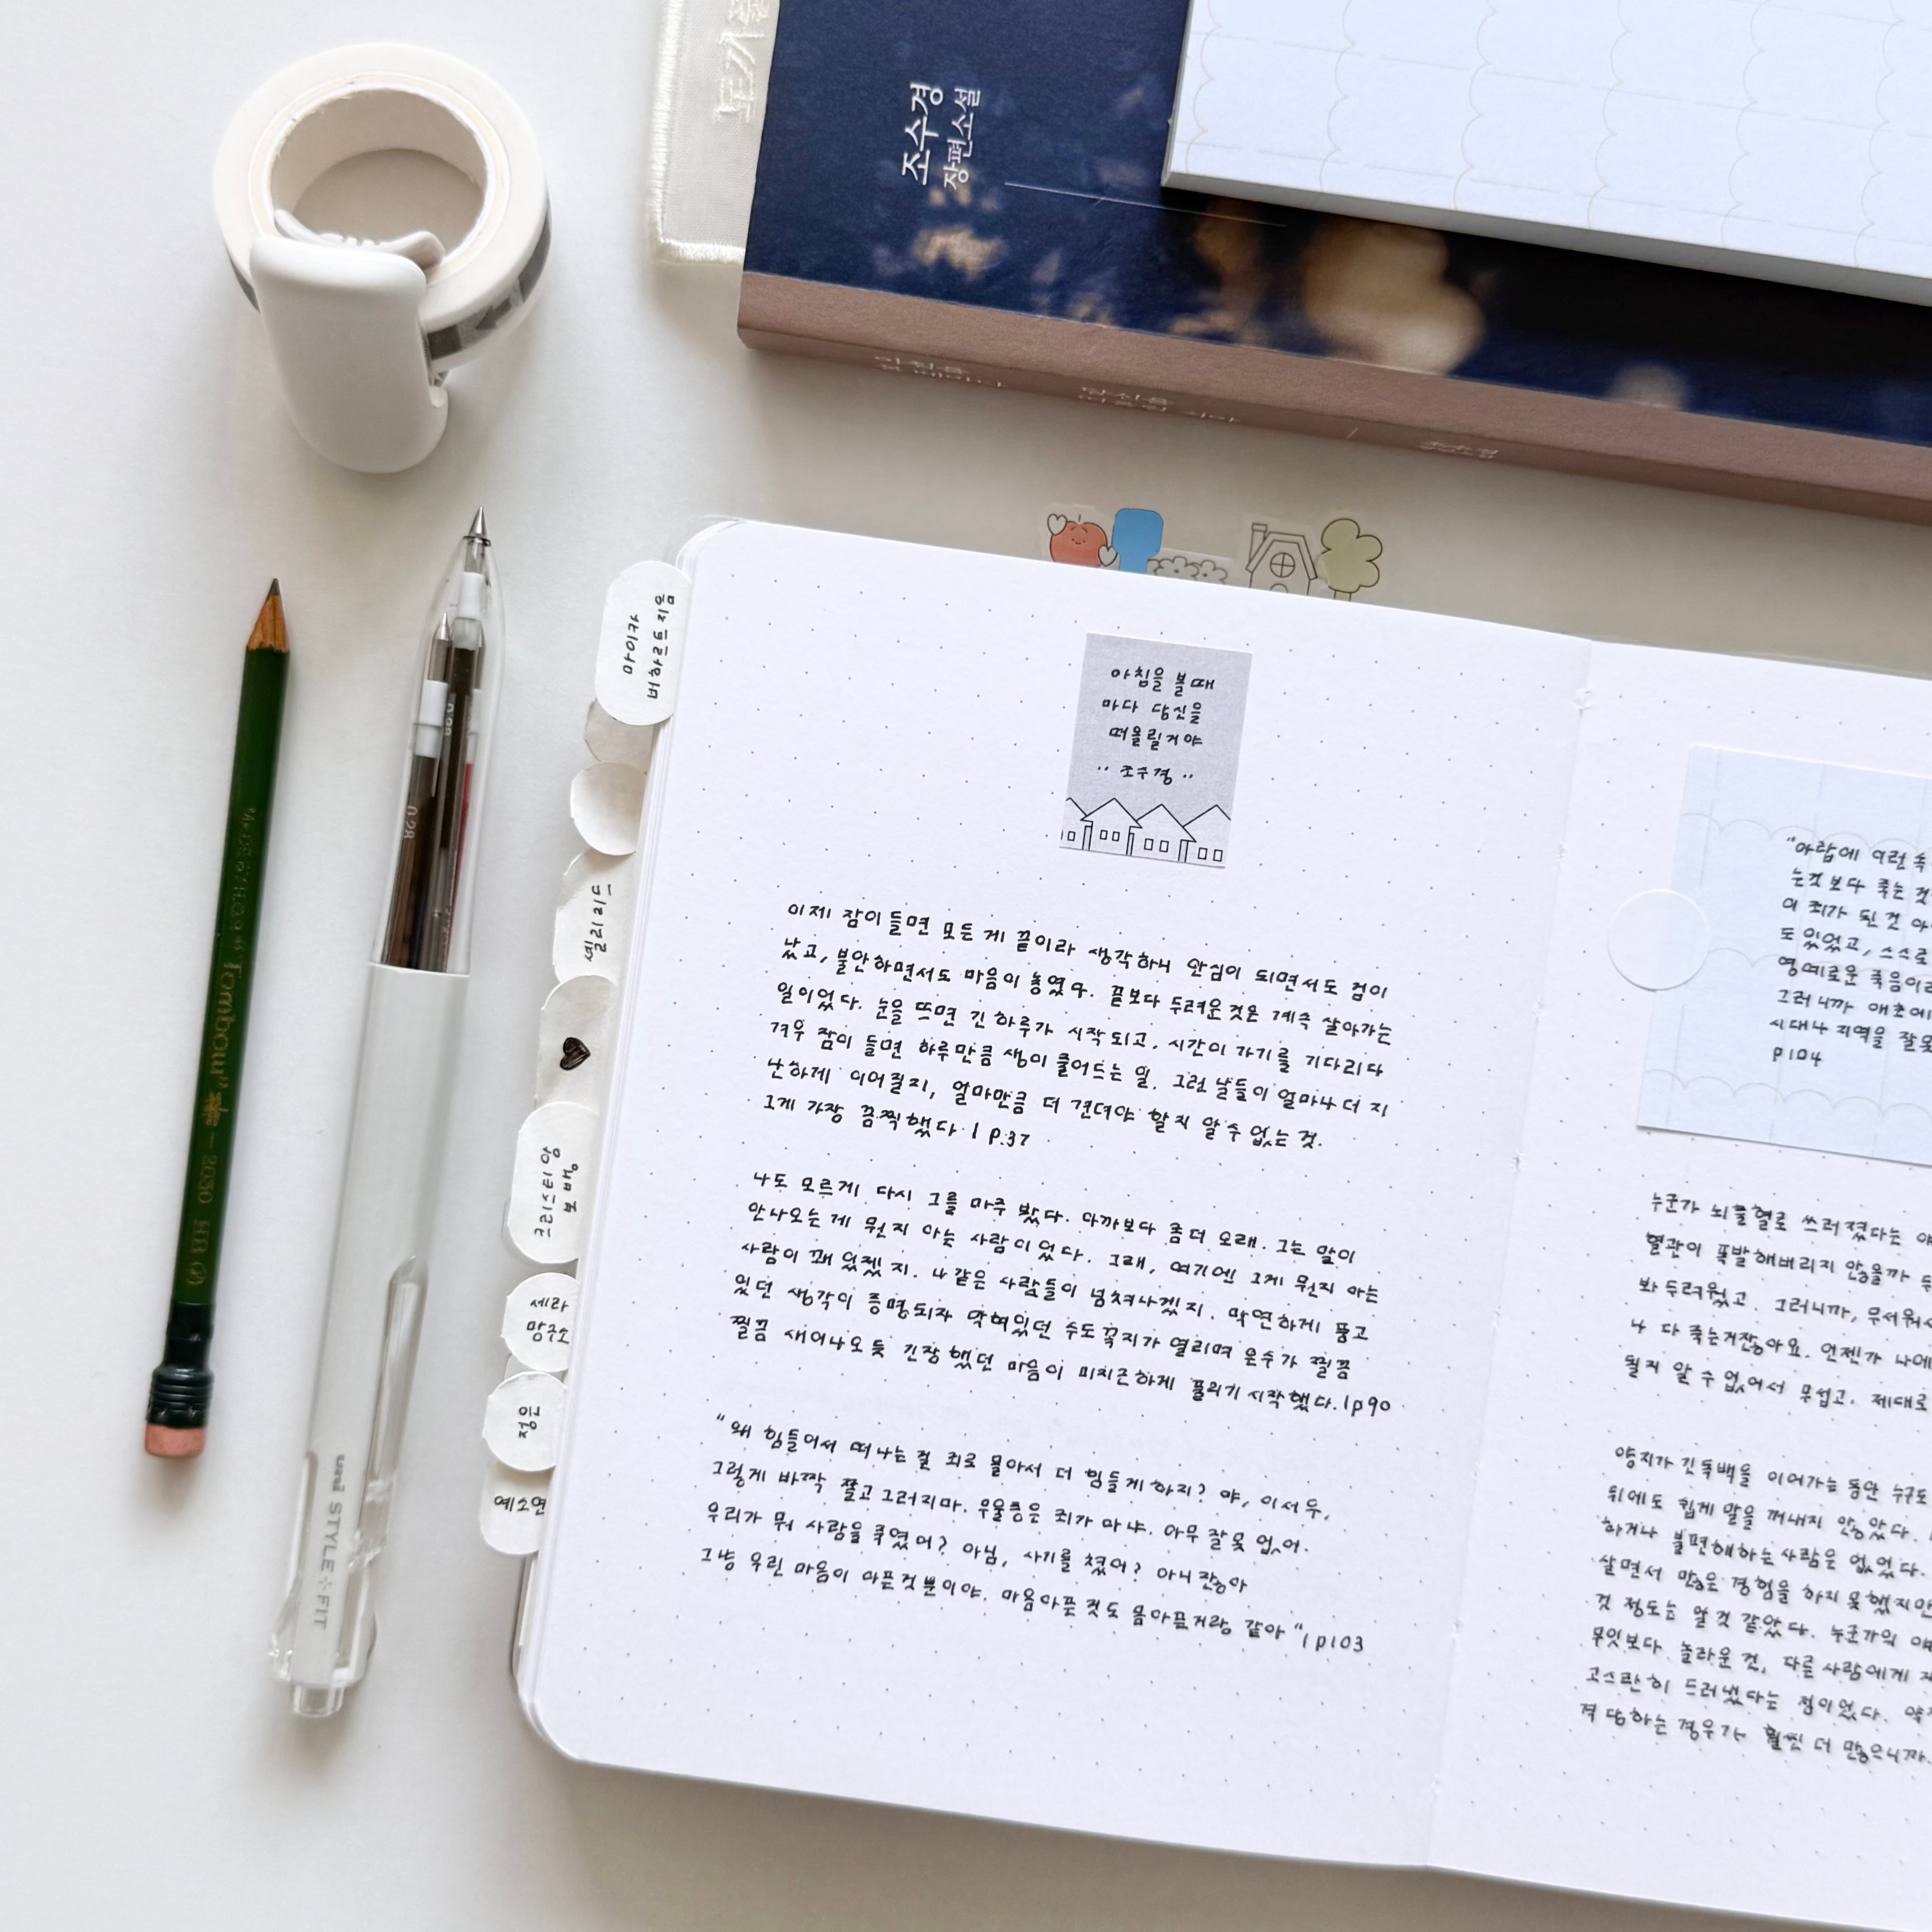 조수경
장편소설
마이카
버하르트지음
아침을 볼때
마다 당신을
떠올릴거야
·· 조수경 ··
이제 잠이 들면 모든 게 끝이라 생각하니 안심이 되면서도 겁이
났고, 불안하면서도 마음이 놓였다. 끝보다 두려운 것은 계속 살아가는
일이었다. 눈을 뜨면 긴 하루가 시작되고, 시간이 가기를 기다리다
겨우 잠이 들면 하루만큼 생이 줄어드는 일. 그런 날들이 얼마나 더 지
난하게 이어질지, 얼마만큼 더 견뎌야 할지 알 수 없는 것.
그게 가장 끔찍했다. | P.37
나도 모르게 다시 그를 마주 봤다. 아까보다 좀 더 오래. 그는 말이
안나오는 게 뭔지 아는 사람이었다. 그래, 여기엔 그게 뭔지 아는
사람이 꽤 있겠지. 나같은 사람들이 넘쳐나겠지. 막연하게 품고
있던 생각이 증명되자 막혀있던 수도꼭지가 열리며 온수가 찔끔
찔끔 새어나오듯 긴장했던 마음이 미지근하게 풀리기 시작했다. | p90
“왜 힘들어서 떠나는 걸 죄로 몰아서 더 힘들게 하지? 야, 이서우,
그렇게 바짝 쫄고 그러지마. 우울증은 죄가 아냐. 아무 잘못 없어.
우리가 뭐 사람을 죽였어? 아님, 사기를 쳤어? 아니잖아
그냥 우린 마음이 아픈것 뿐이야. 마음아픈것도 몸아픈거랑 같아“ | p103
“아랍에 이런 속
는것보다 죽는 것
이 죄가 된 건 아
도 있었고, 스스로
명예로운 죽음이라
그러니까 애초에
시대나 지역을 잘못
p104
누군가 뇌출혈로 쓰러졌다는 얘
혈관이 폭발해버리지 않을까 두
봐 두려웠고. 그러니까, 무서워서
나 다 죽는거잖아요. 언젠가 나에
될지 알 수 없어서 무섭고. 제대로
양지가 긴 독백을 이어가는 동안 누구도
뒤에도 쉽게 말을 꺼내지 않았다.
하거나 불편해하는 사람은 없었다.
살면서 많은 경험을 하지 못했지만
것 정도는 알 것 같았다. 누군가의 얘
무엇보다 놀라운 건, 다른 사람에게 자
고스란히 드러냈다는 점이었다.
격당하는 경우가 훨씬 더 많으니까.
크리스티앙
보뱅
세라
망구소
정원
예소연
Tombow
2030 HB
uni STYLE FIT
0.28